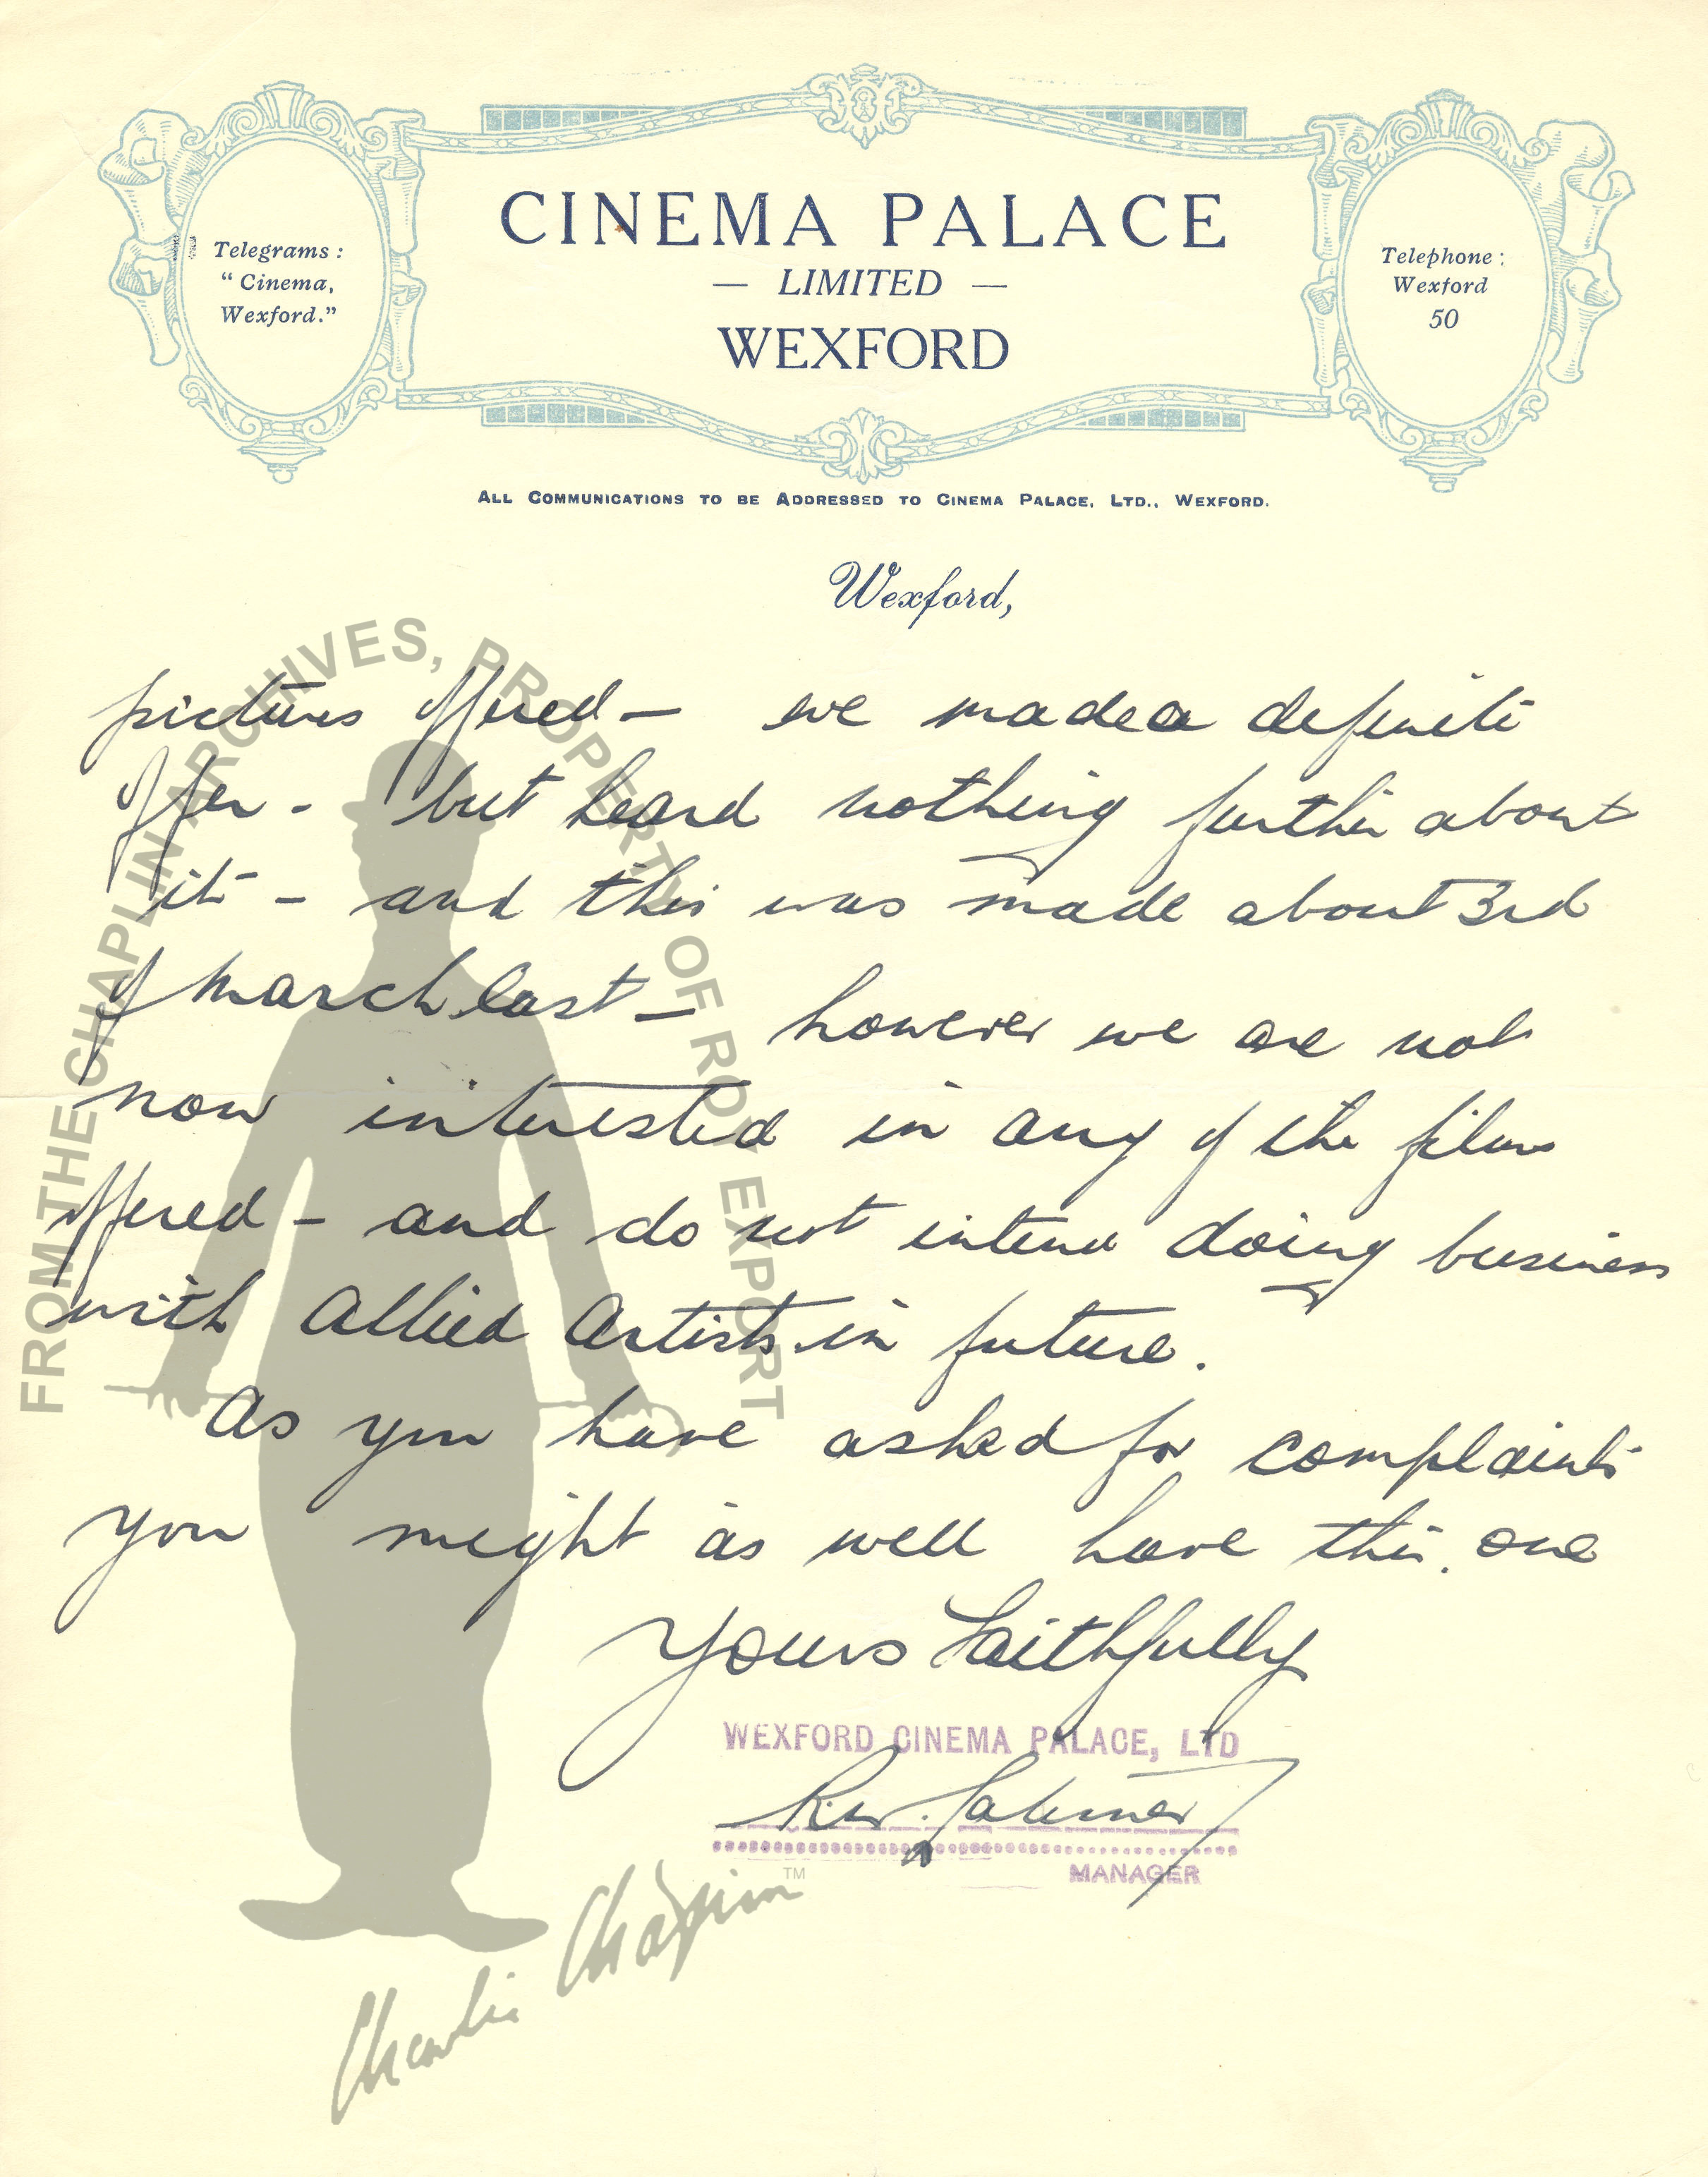 CINEMA PALACE
— LIMITED —
WEXFORD
Telegrams :
“ Cinema,
Wexford.”
Telephone :
Wexford
50
ALL COMMUNICATIONS TO BE ADDRESSED TO CINEMA PALACE, LTD., WEXFORD.
Wexford,
pictures offered — we made a definite
offer - but heard nothing further about
it - and this was made about 3rd
of March last — however we are not
now interested in any of the films
offered - and do not intend doing business
with Allied Artists in future.
As you have asked for complaints
you might as well have this one
Yours Faithfully
WEXFORD CINEMA PALACE, LTD
R.W.
MANAGER
FROM THE CHAPLIN ARCHIVES, PROPERTY OF ROY EXPORT
Charlie Chaplin ™